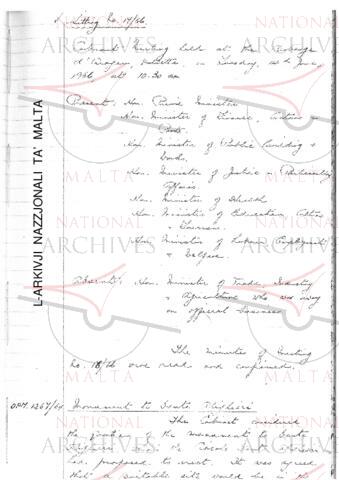 Sitting No. 19/66.
Cabinet Meeting held at the Auberge
d'Aragon, Valletta, on Tuesday, June,
1966 at 10.30 am
Present: Hon. Prime Minister
Hon. Minister of Finance, Customs &
Ports.
Hon. Minister of Public Building &
Works.
Hon. Minister of Justice & Parliamentary
Affairs
Hon. Minister of Health
Hon. Minister of Education, Culture
& Tourism.
Hon. Minister of Labour, Employment
& Welfare.
Absent: Hon. Minister of Trade, Industry
& Agriculture who was away
on official business
The minutes of meeting
No. 18/66 were read and confirmed.
OPM. 1267/64 Monument to Dante Alighieri
The Cabinet considered
the monument to Dante
had proposed to erect. It was agreed
that a suitable site would be in the
L-ARKIVJI NAZZJONALI TA' MALTA
NATIONAL
ARCHIVES
MALTA
NATIONAL
ARCHIVES
MALTA
NATIONAL
ARCHIVES
MALTA
NATIONAL
ARCHIVES
MALTA